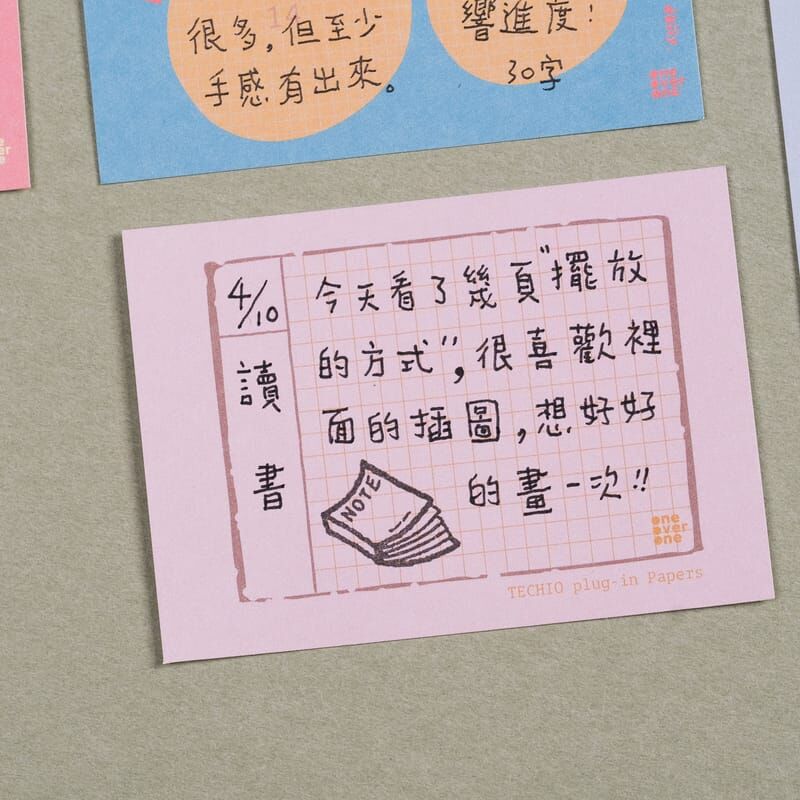 很多，但至少
手感有出來。
響進度！
30字
one
over
one
4/10
讀書
今天看了幾頁"擺放
的方式"，很喜歡裡
面的插圖，想好好
的畫一次!!
NOTE
one
over
one
TECHIO plug-in Papers